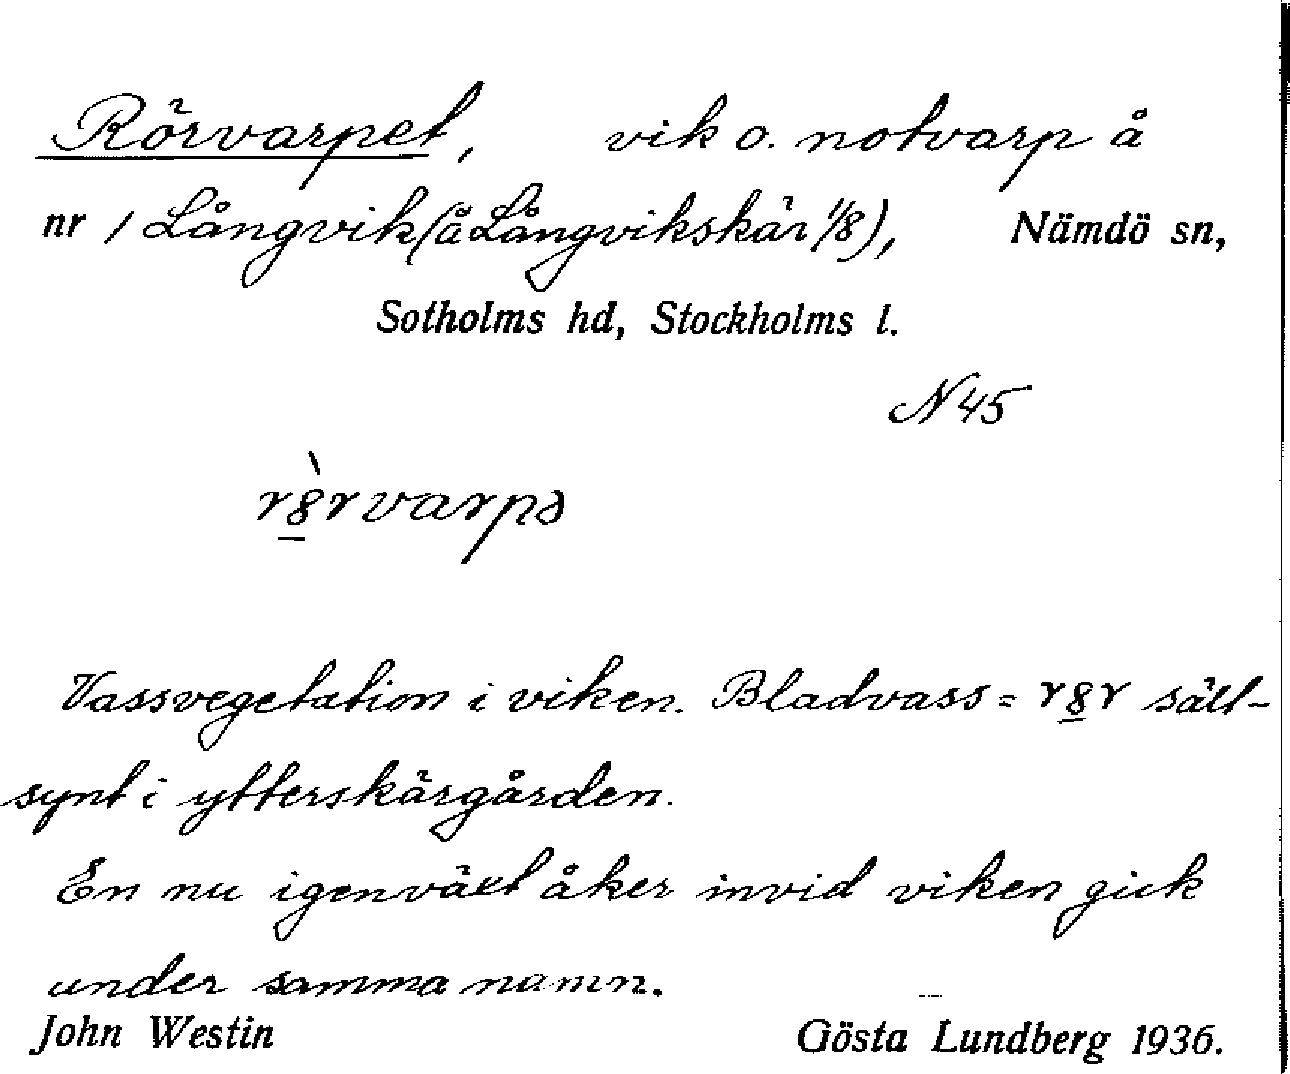 Rörvarpet, vik o. notvarp å
nr 1 Långvik (å Långvikskär 1/8), Nämdö sn,
Sotholms hd, Stockholms l.
N 45
r8̲̀rvarpə
Vassvegetation i viken. Bladvass = r8̲r säll-
synt i ytterskärgården.
En nu igenväxt åker invid viken gick
under samma namn.
John Westin Gösta Lundberg 1936.